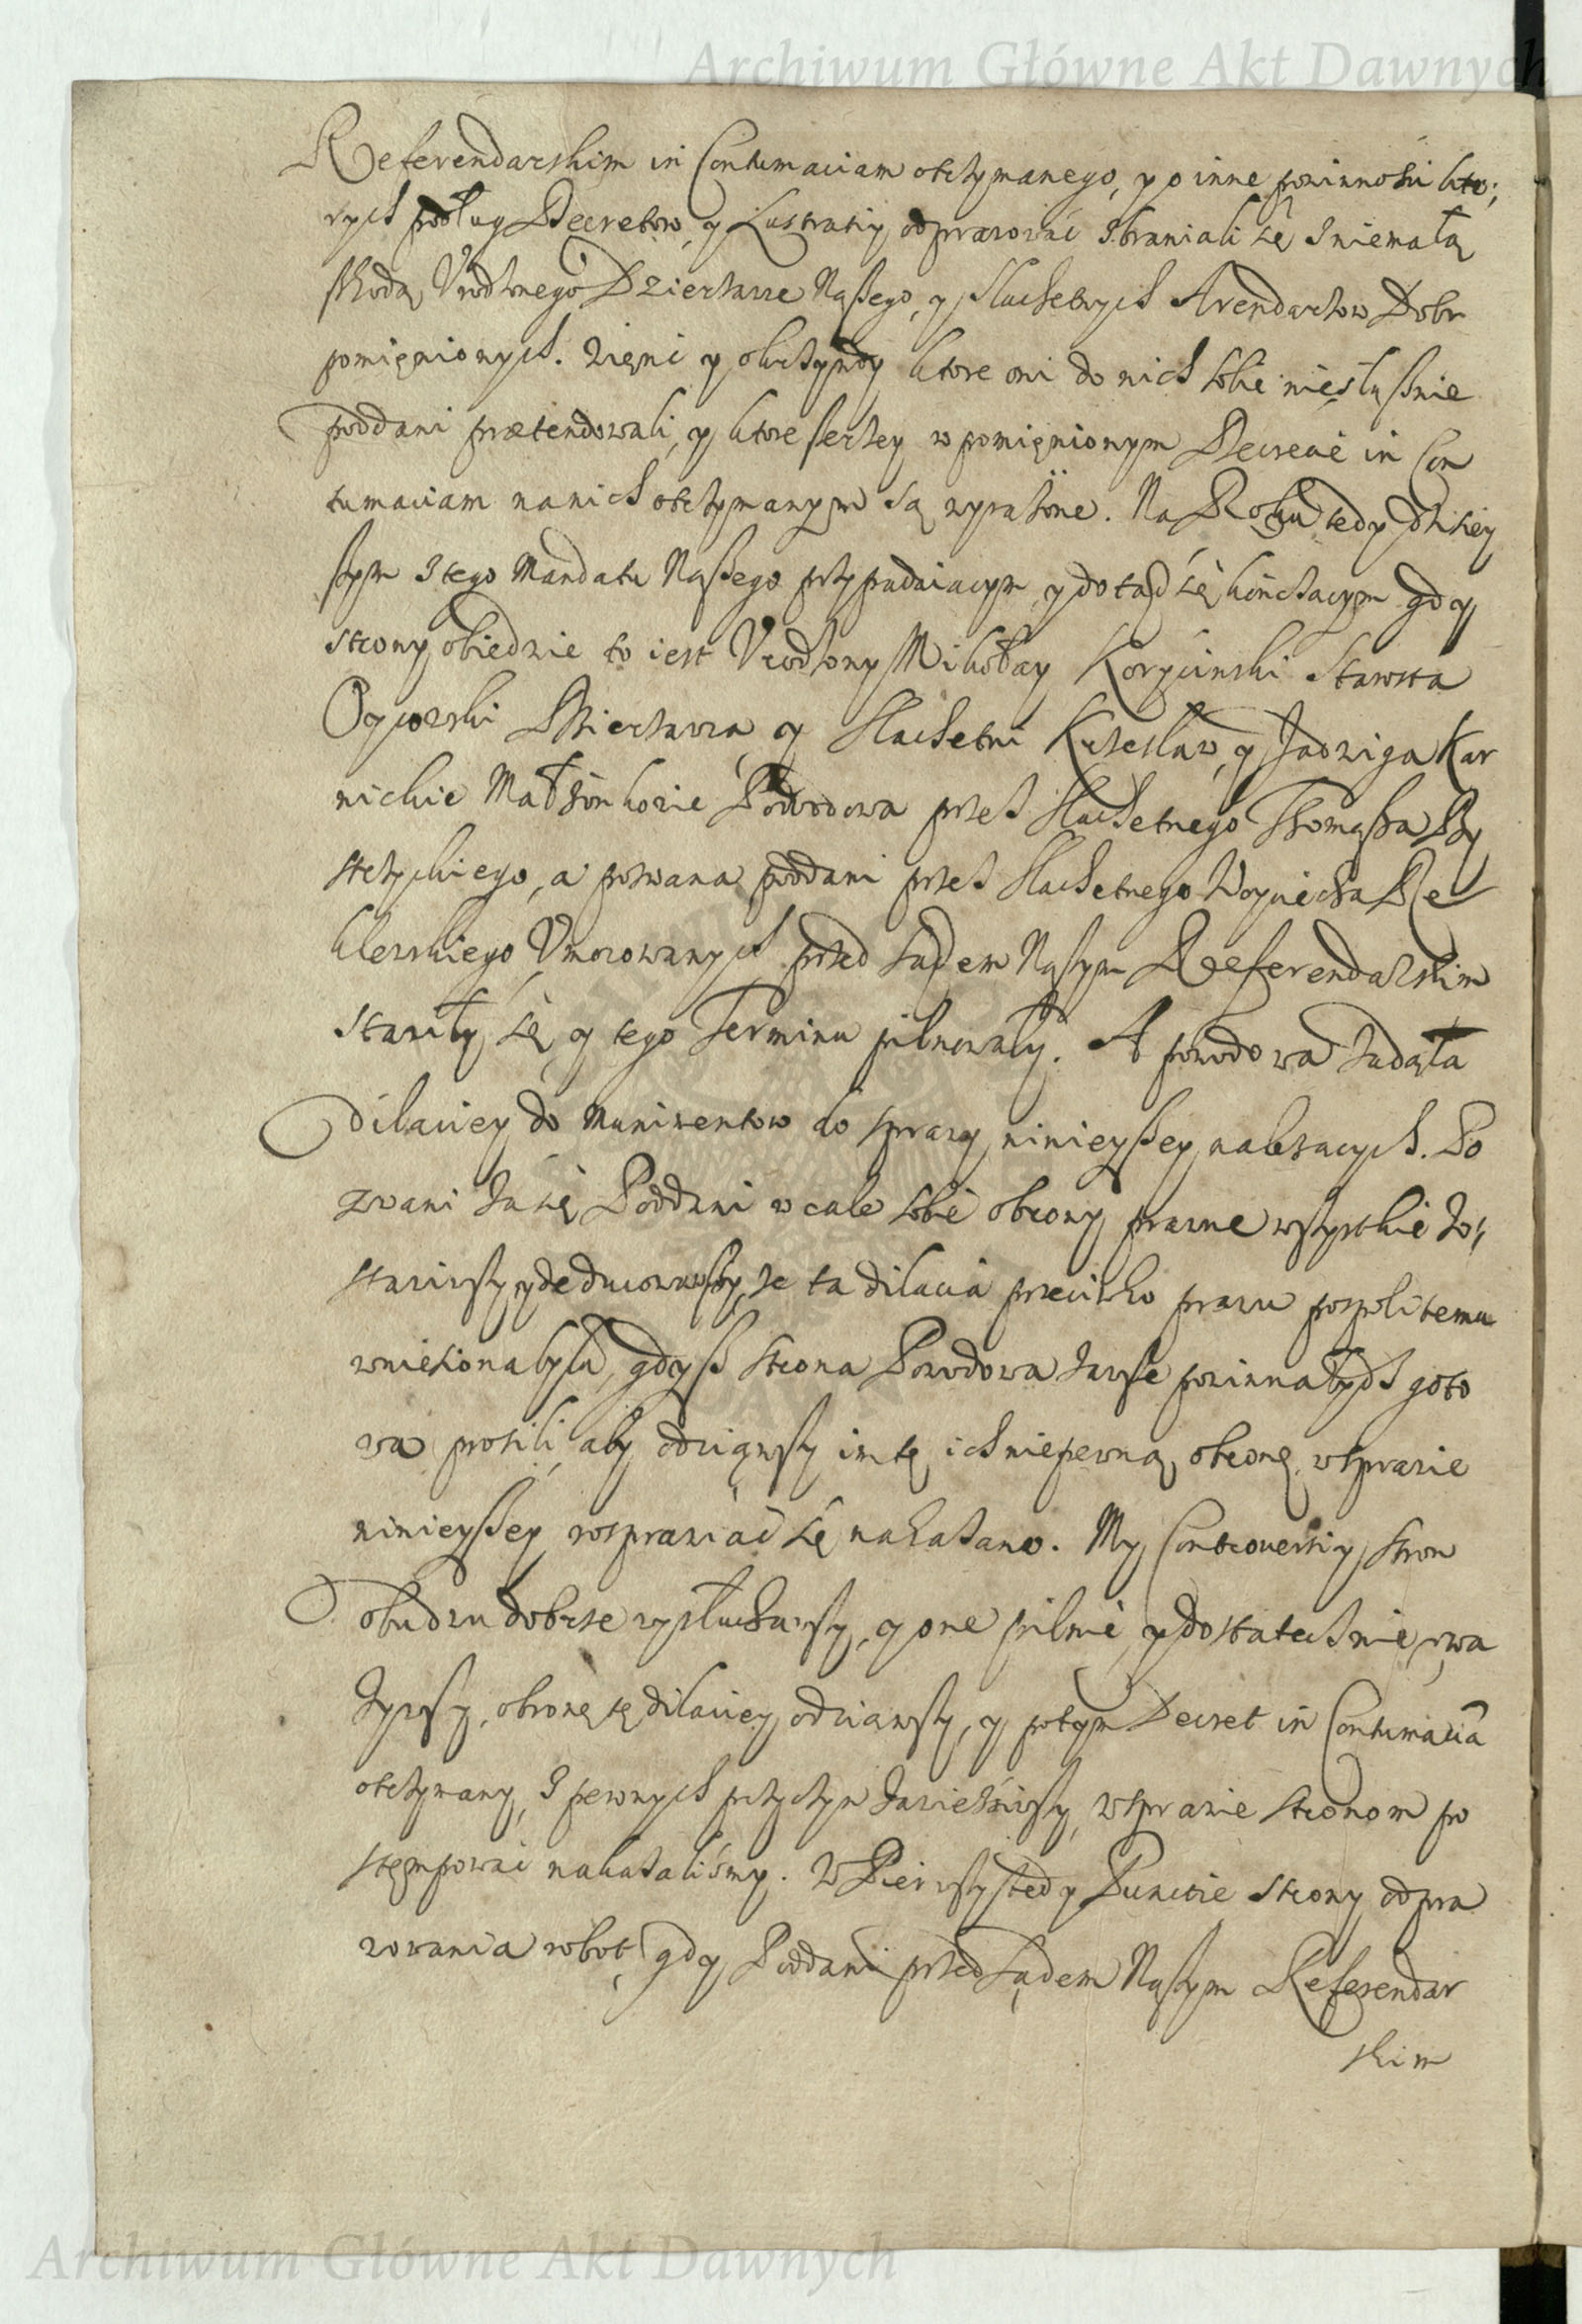 Archiwum Główne Akt Dawnych
Referendarskim in Contumaciam otrzymanego, y o inne powinnosci kto,
rych podług Decretow, y Lustratiy odprawować zbraniali się z niemałą
szkodą Vrodzonego Dzierzawce Naszego, y Slachetnych Arendarzow Dobr
pomięnionych. y o krzywdy ktore oni do nich sobie niesłusznie
poddani prætendowali, y ktore szerzey w pomięnionym Decrecie in Con
tumaciam na nich otrzymanym są wyrażone. Na Roku tedy dzisiey
szym z tego Mandatu Naszego przypadaiącym, y dotąd się kończącym gdy
strony obiedwie to iest Vrodzony Mikołay Koryciński Starosta
Oycowski Dzierzawca, y Slachetni Krzesław, y Jadwiga Kar
nickie Małżonkowie Powodowa przez Slachetnego Thomasza By
strzyckiego, a pozwana poddani przez Slachetnego Woyciecha Re
klewskiego Vmocowanych przed Sądem Naszym Referendarskim
stawiły się, y tego Terminu pilnowały. A powodowa żądała
dilaciey do Munimentow do sprawy ninieyszey należących. Po
zwani zasię Poddani w cale sobie obrony prawne wszystkie zo,
stawiwszy, y deducowawszy, że ta dilacia przeciwko prawu pospolitemu
wniesiona była, gdysz strona Powodowa zawsze powinna bydź goto
wa prosili, aby odciąwszy im tę ich niepewną obronę w sprawie
ninieyszey rosprawiać się nakazano. My Controuersiy stron
obudwu dobrze wysłuchawszy, y one pilnie, y dostatecznie vwa
żywszy, obronę tę dilaciey odciąwszy, y potym Decret in Contumaciã
otrzymany, z pewnych przyczyn zawiesiwszy, w sprawie stronom po
stęmpować nakazaliśmy. W Pierwszy tedy Puncie strony odpra
wowania robot, gdy Poddani przed Sądem Naszym Referendar
skim
Archiwum Główne Akt Dawnych